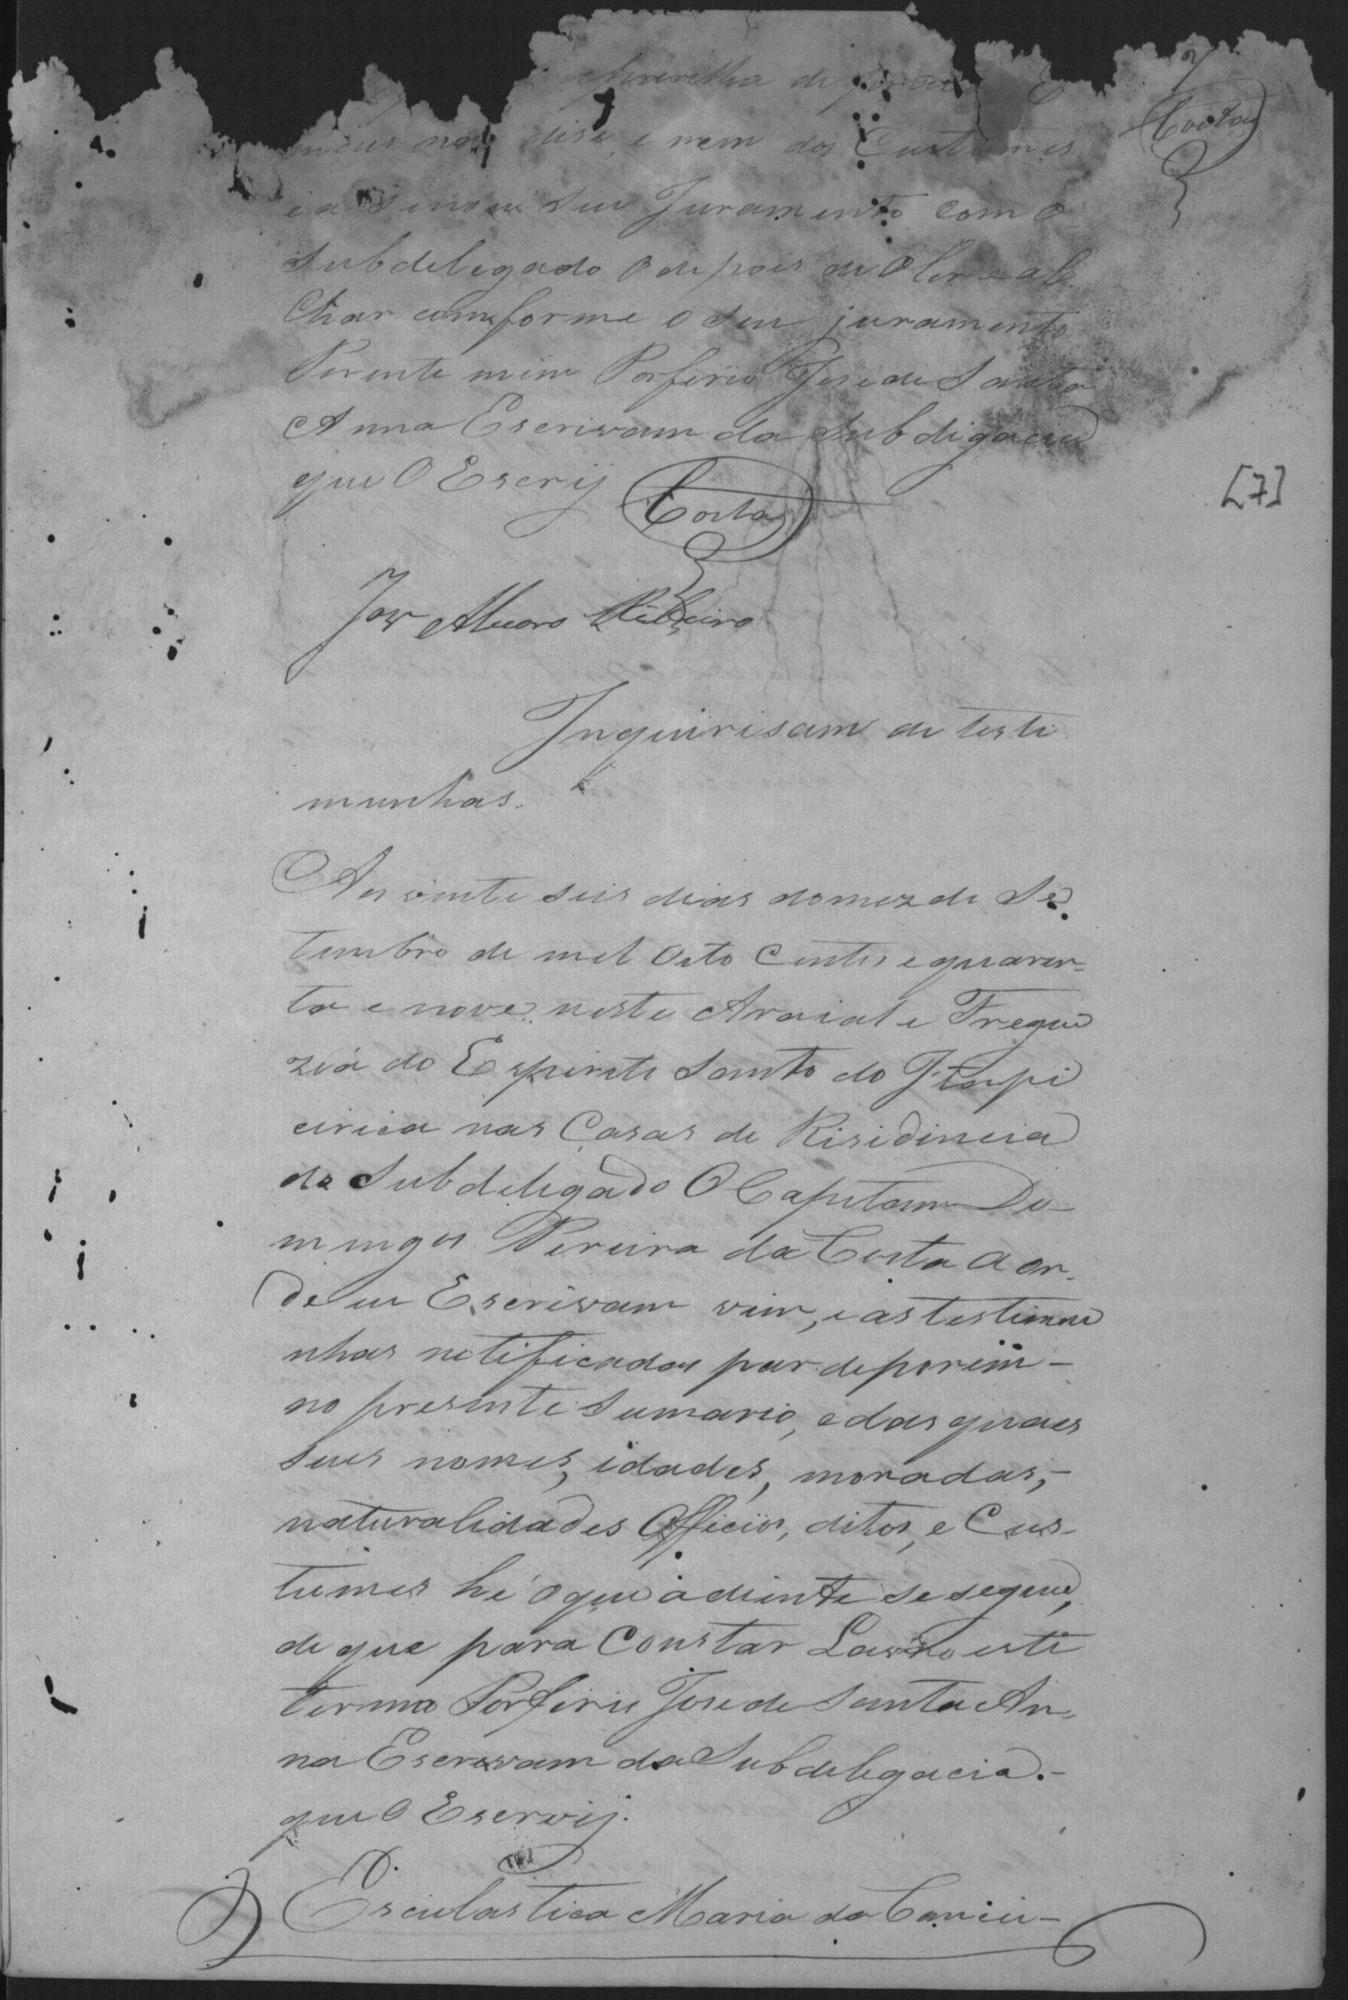 Costa
mais não disse, e nem dos Custumes
e asinou seu Juramento com o
Subdelegado o depois de o ler e al
Char comforme o seu juramento
Perente mim Porferio Jose de Santa
Anna Escrivam da Subdigacia
que O Escrij Costa
Jose Alvaro Ribeiro
[7]
Inquirisam de teste
munhas.
Aos vinte seis dias do mez de Se
tembro de mil Oito Centos e quaren-
ta e nove neste Araial e Fregue
zia do Espirito Santo do Itapi
cirica nas Casas de Risidincia
do Subdelegado O Capitam Do-
mingos Pereira da Costa a on-
de eu Escrivam vim, e as testimu
nhas notificadas par deporem -
no presente Sumario, e das quaes
seus nomes, idades, moradas, -
naturalidades Officios, ditos, e Cus-
tumes hé o que adiente se segue,
de que para Constar Lavro este
termo Porferio Jose de Santa An-
na Escrivam da Subdelegacia. -
que O Escrvij.
Esculastica Maria da Concei-